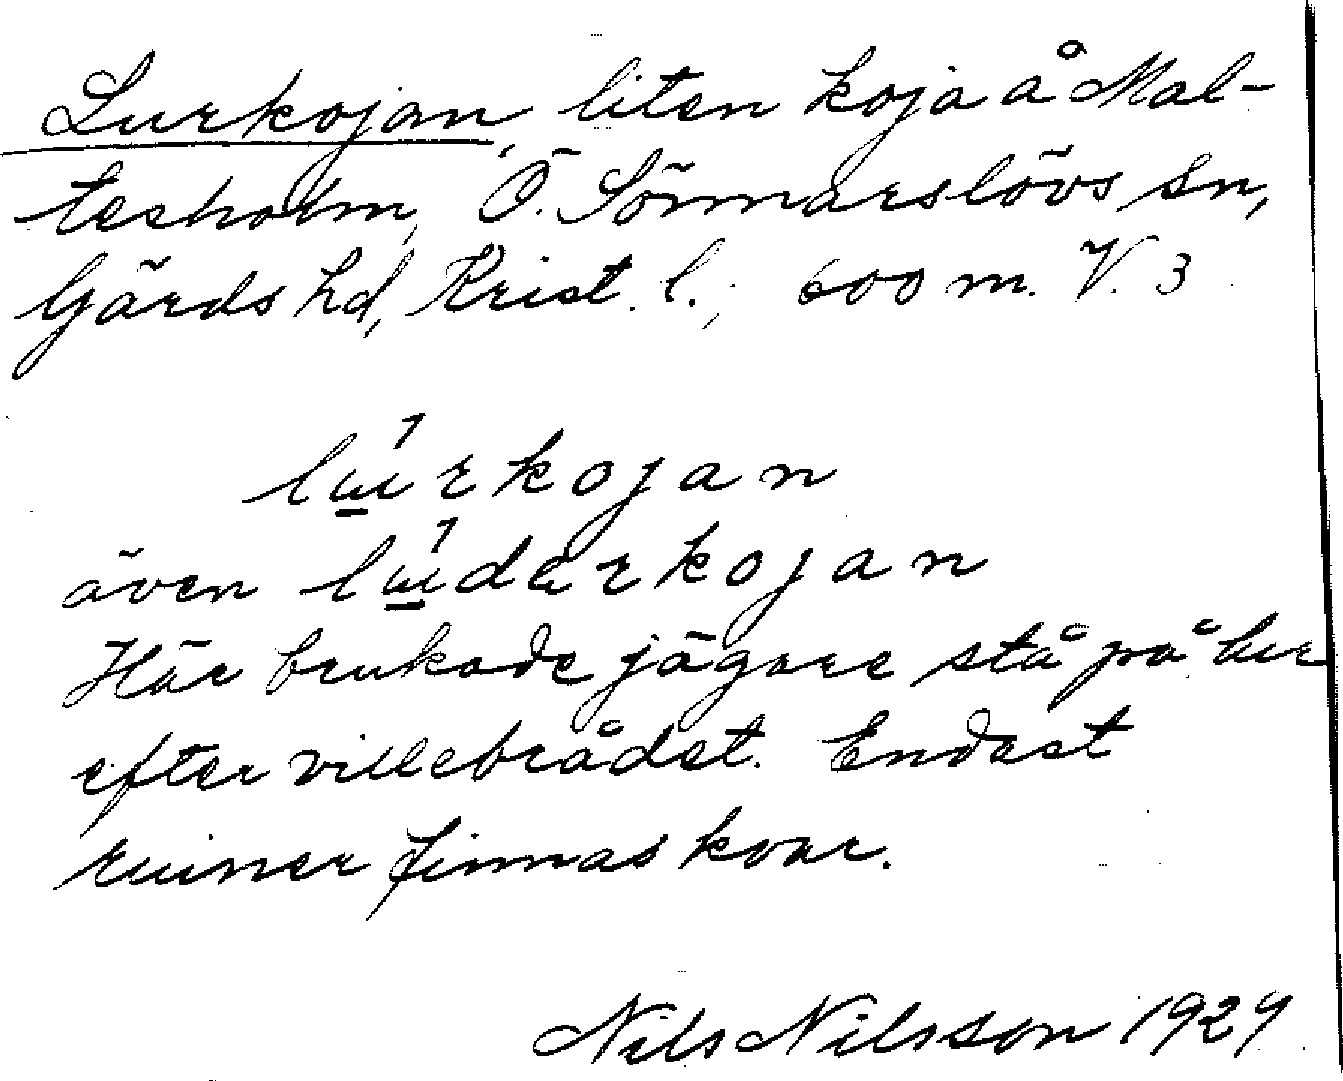 Lurkojan, liten koja å Mal-
tesholm, Ö. Sönnarslövs sn,
Gärds hd, Krist. l.; 600 m. V. 3
lu̲rkojan
även lu̲darkojan
Här brukade jägare stå på lur
efter villebrådet. Endast
ruiner finnas kvar.
Nils Nilsson 1929